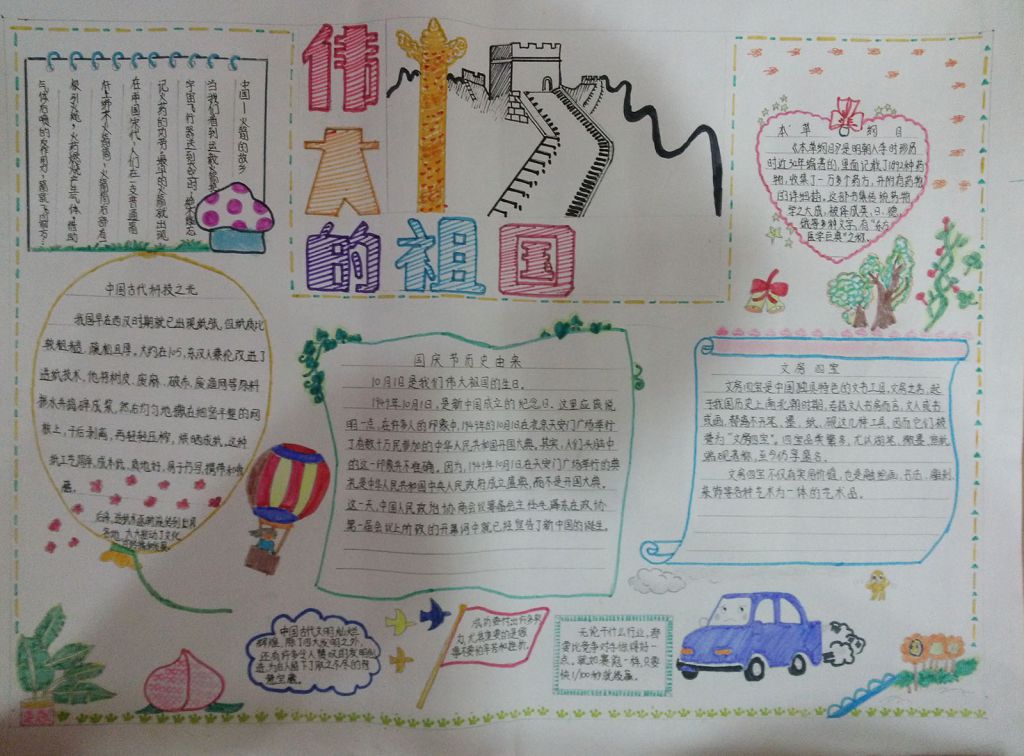 伟
大
的祖国
中国—火箭的故乡
当我们看到运载火箭
宇宙飞行器送到太空时
记火药的功劳,最早的火箭就出现
在中国宋代,人们在一支普通箭
杆上绑木火药筒,火药筒后带有
极引线,火药燃烧产生气体,借助
气体后喷的反作用力,
本草纲目
《本草纲目》是明朝李时珍历
时近30年编著的,里面记载了1892种药
物,收集了一万多个药方,并附有药物
的详细图,这部书集传统药物
学之大成,被译成英、日、德、
俄等多种文字,有“东方
医学巨典”之称。
中国古代科技之光
我国早在西汉时期就已出现纸张,但纸质比
较粗糙、疏松且厚。大约在105,东汉人蔡伦改进了
造纸技术,他将树皮、废麻、破布、废渔网等原料
掺水弄捣碎成浆,然后均匀地撒在细密平整的网
板上,干后剥离,再轻轻压榨,烘晒成纸,这种
纸工艺简单,成本低,质地好,易于书写、携带和收
藏。
后来,造纸术逐渐流传到世界
各地,大大推动了文化
国庆节历史由来
10月1日是我们伟大祖国的生日。
1949年10月1日,是新中国成立的纪念日。这里应该说
明一点,在许多人的印象中,1949年10月1日在北京天安门广场举行
了有数十万民参加的中华人民共和国开国大典。其实,人们头脑中
的这一印象并不准确。因为,1949年10月1日在天安门广场举行的典
礼是中华人民共和国中央人民政府成立盛典,而不是开国大典。
这一天,中国人民政治协商会议筹备会主任毛泽东在政协
第一届会议上所致的开幕词中就已经宣告了新中国的诞生。
文房四宝
文房四宝是中国独具特色的文书工具,文房之名,起
于我国历史上南北朝时期,专指文人书房而言,文人或书
或画,都离不开笔、墨、纸、砚这几样工具,因而它们被
誉为“文房四宝”。四宝品类繁多,尤以湖笔、徽墨、宣纸
端砚著称,至今仍享盛名。
文房四宝不仅有实用价值,也是融绘画、书法、雕刻、
装饰等各种艺术为一体的艺术品。
中国古代文明灿烂
辉煌,除了四大发明之外,
还有许多令人赞叹的发明创
造,为后人留下了取之不尽的智
慧宝藏。
成功要付出许多努
力,尤其重要的是做
事不要怕辛苦和挫折。
无论干什么行业,都
需比竞争对手做得好一
点。就如赛跑一样,只要
快1/100秒就能赢。